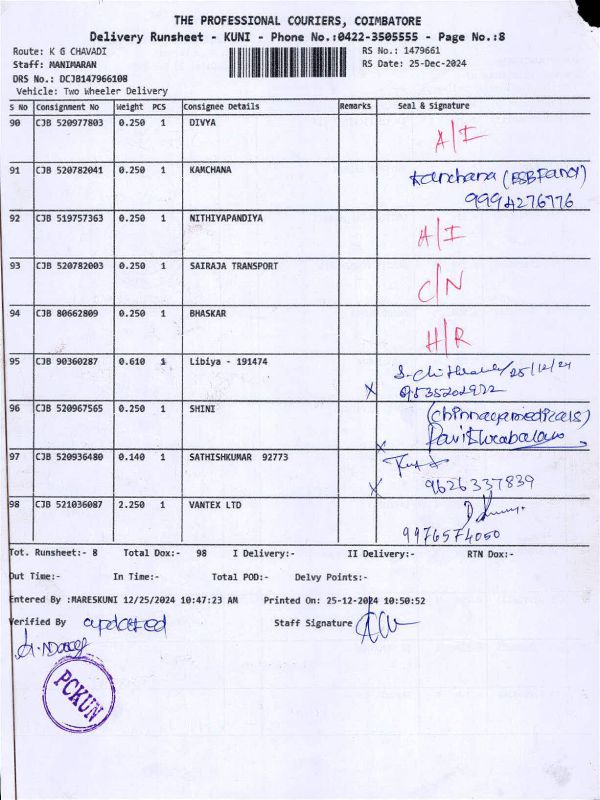 THE PROFESSIONAL COURIERS, COIMBATORE
Delivery Runsheet - KUNI - Phone No.:0422-3505555 - Page No.:8
Route: K G CHAVADI RS No.: 1479661
Staff: MANIMARAN RS Date: 25-Dec-2024
DRS No.: DCJB147966108
Vehicle: Two Wheeler Delivery
S No Consignment No Weight PCS Consignee Details Remarks Seal & Signature
90 CJB 520977803 0.250 1 DIVYA A/I
91 CJB 520782041 0.250 1 KAMCHANA Kanchana (ESBFanch)
9994276776
92 CJB 519757363 0.250 1 NITHIYAPANDIYA A/I
93 CJB 520782003 0.250 1 SAIRAJA TRANSPORT C/N
94 CJB 80662809 0.250 1 BHASKAR H/R
95 CJB 90360287 0.610 1 Libiya - 191474 25/12/24
x 9535202922
96 CJB 520967565 0.250 1 SHINI
x
97 CJB 520936480 0.140 1 SATHISHKUMAR 92773
x 9626337839
98 CJB 521036087 2.250 1 VANTEX LTD
9976574050
Tot. Runsheet:- 8 Total Dox:- 98 I Delivery:- II Delivery:- RTN Dox:-
Out Time:- In Time:- Total POD:- Delvy Points:-
Entered By :MARESKUNI 12/25/2024 10:47:23 AM Printed On: 25-12-2024 10:50:52
Verified By updated Staff Signature
PCKUN